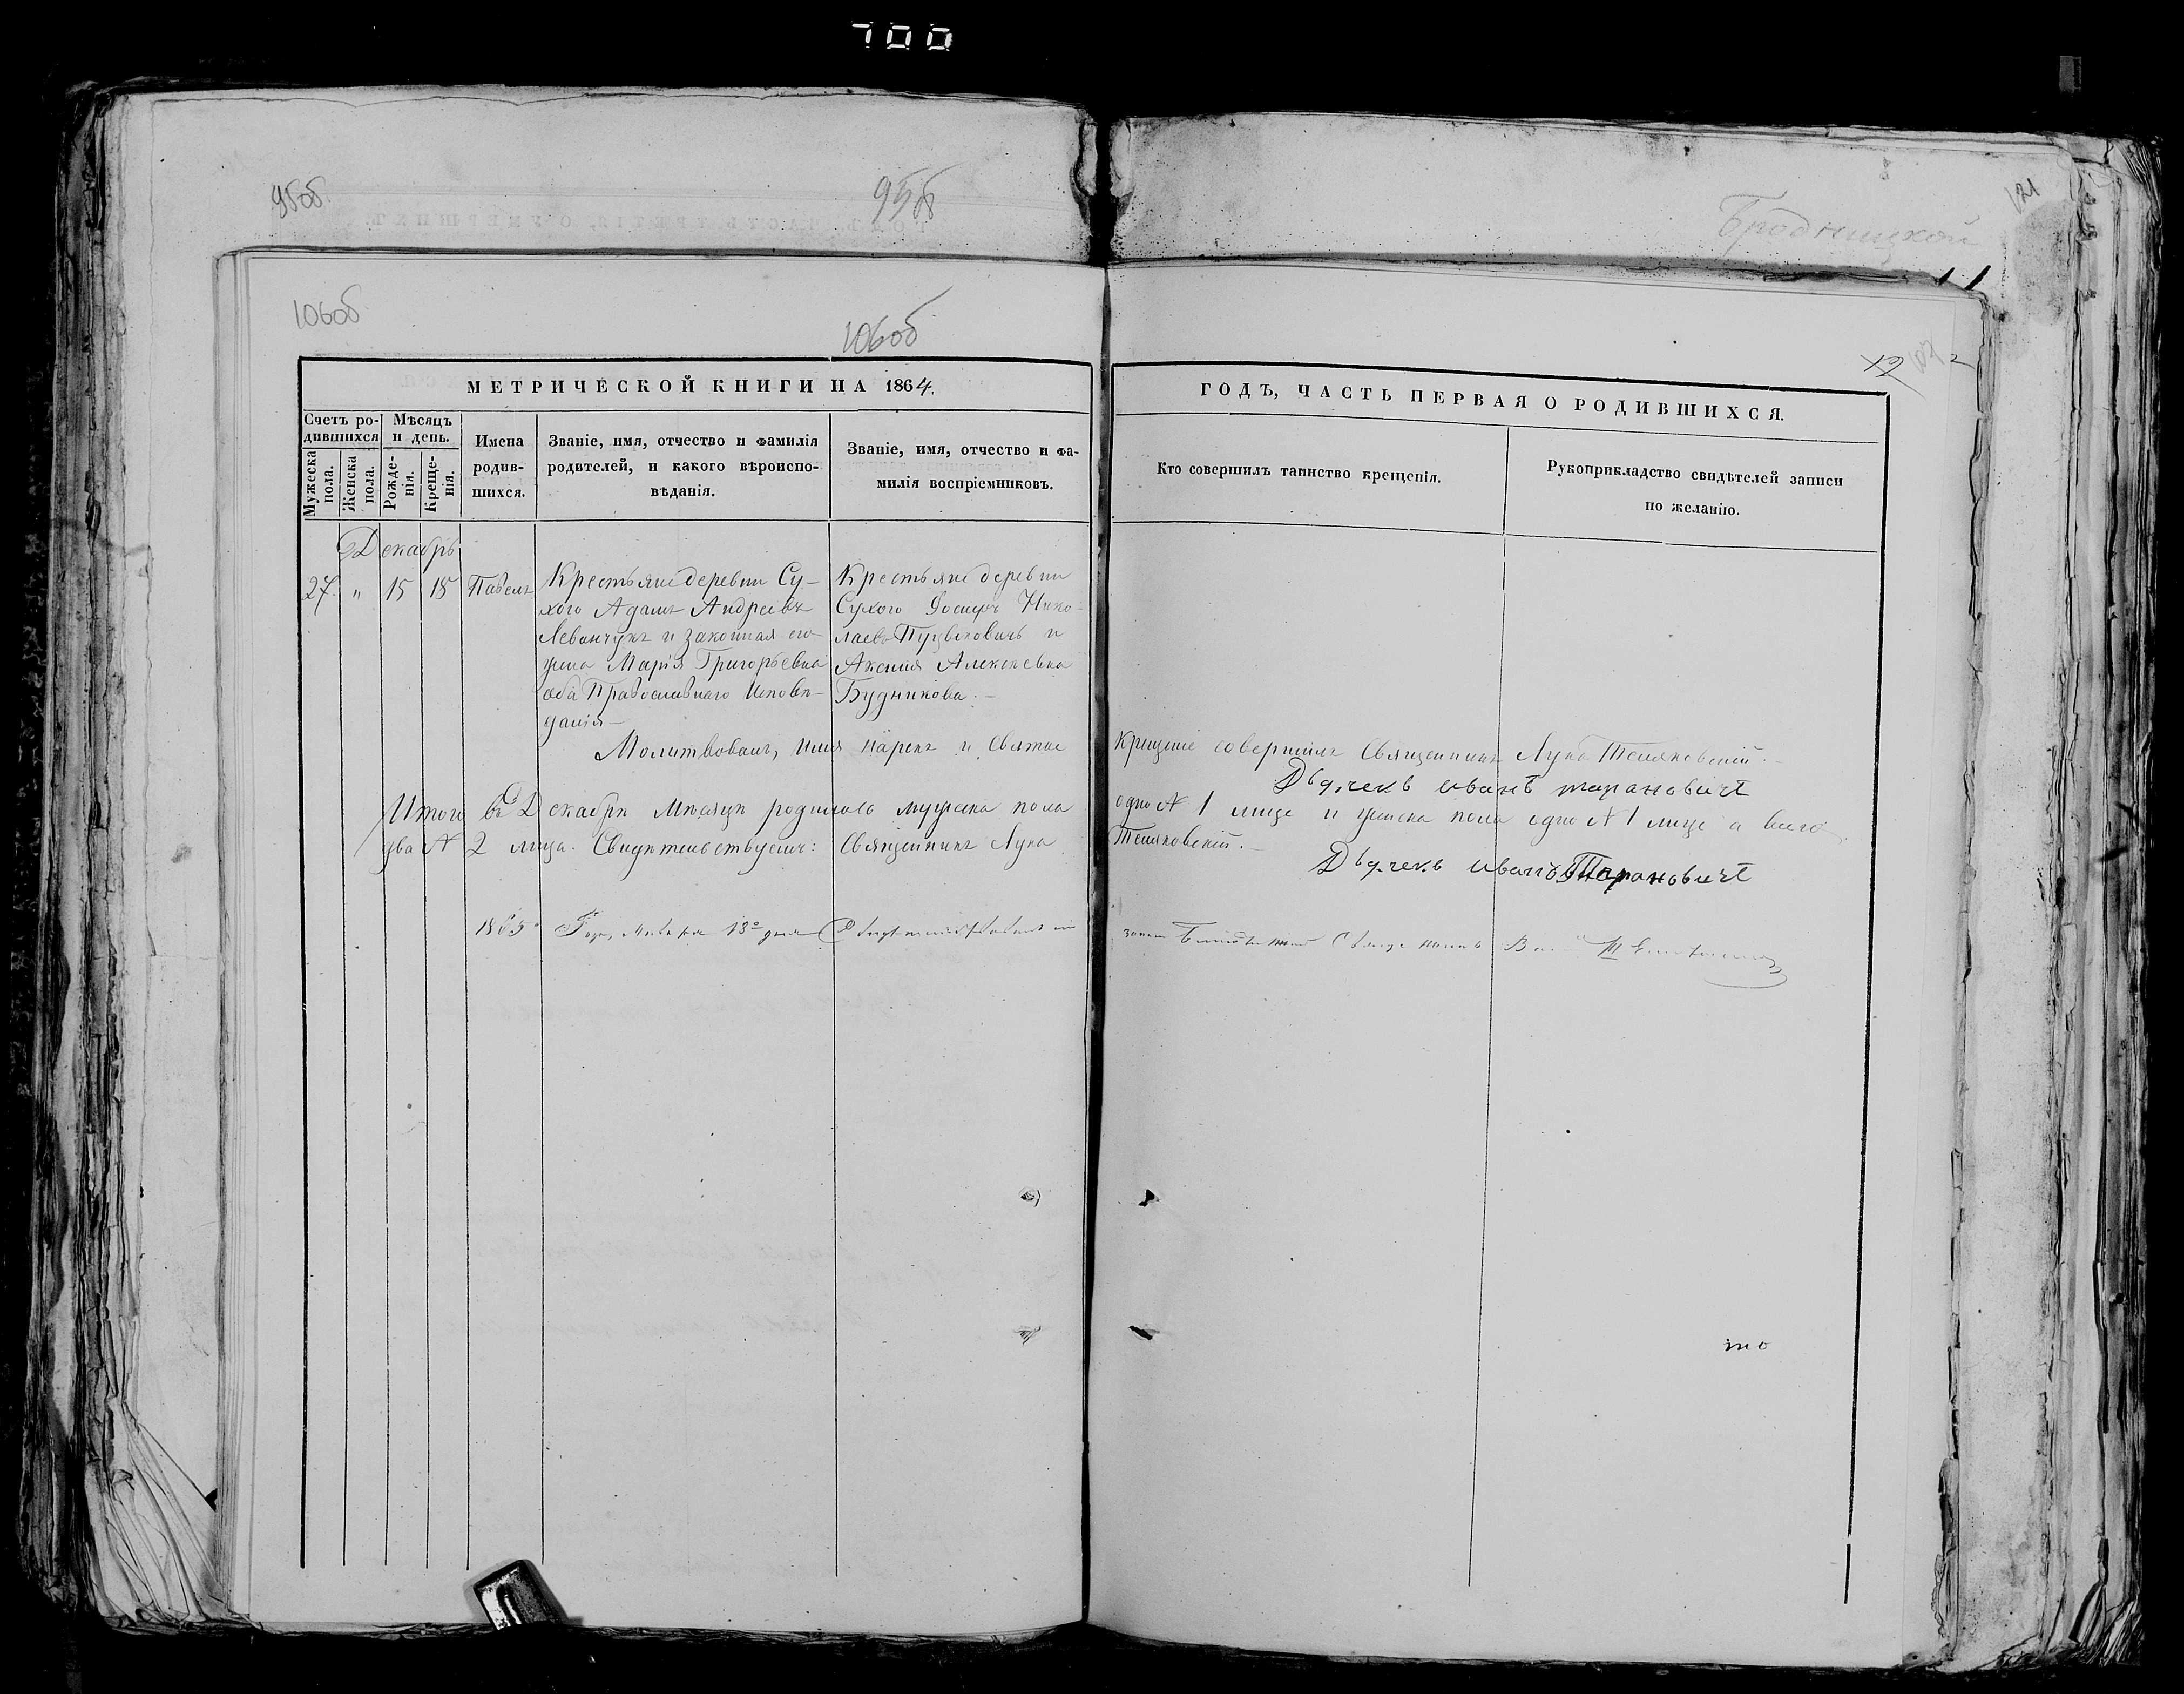 700
95об.
95об
Бродницкой
121
106об
106об
МЕТРИЧЕСКОЙ КНИГИ НА 1864.
ГОДЪ, ЧАСТЬ ПЕРВАЯ О РОДИВШИХСЯ.
Счетъ ро-
дившихся
Мужеска
пола.
Женска
пола.
Мѣсяцъ
и день.
Рожде-
нія.
Креще-
нія.
Имена
родив-
шихся.
Званіе, имя, отчество и фамилія
родителей, и какого вѣроиспо-
вѣданія.
Званіе, имя, отчество и фа-
милія воспріемниковъ.
Кто совершилъ таинство крещенія.
Рукоприкладство свидѣтелей записи
по желанію.
Декабрь
27. " 15 18 Павелъ
Крестьяне деревни Су-
хого Адамъ Андреевъ
Леванчукъ и законная его
жена Марія Григорьевна
оба Православнаго Исповѣ-
данія
Крестьяне деревни
Сухого Іосифъ Нико-
лаевъ Пуцыковичъ и
Аксения Алексеевна
Будникова.
Молитвовалъ, имя нарекъ и Святое
Крещеніе совершилъ Священникъ Лука Теляковскій.
Дьячекъ иванъ тарановичъ
Итого въ Декабрѣ Мѣсяцѣ родилось мужска пола
одно № 1 лице и женска пола одно № 1 лице а всего
два № 2 лица. Свидѣтельствуемъ: Священникъ Лука
Теляковскій.
Дьячекъ иванъ Тарановичъ
1865 Года, Января 13º дня
то